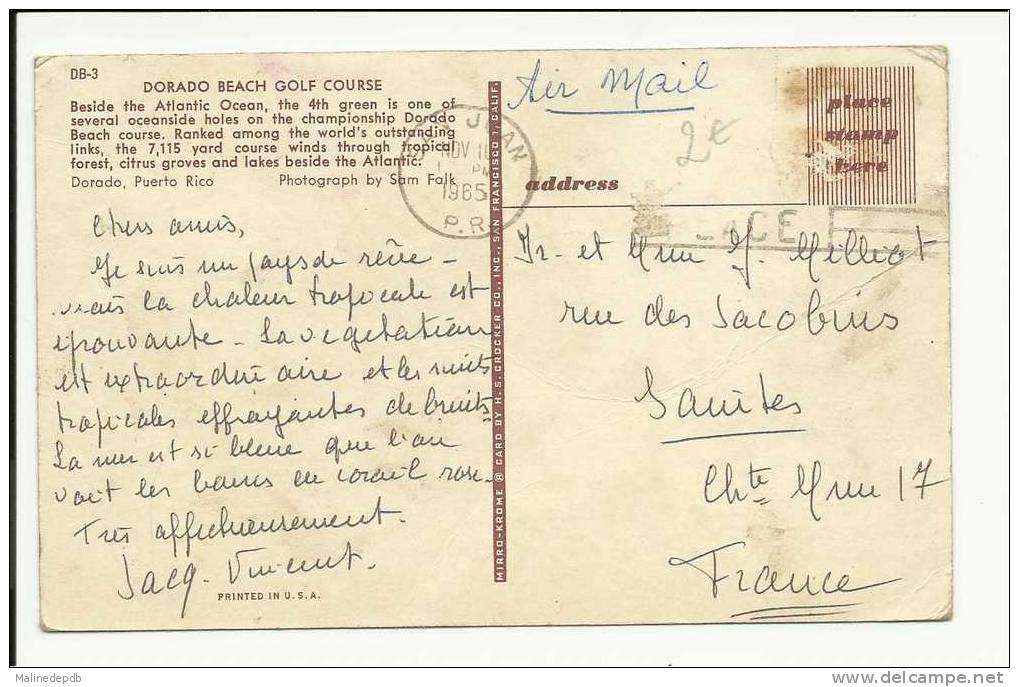 DB-3
DORADO BEACH GOLF COURSE
Beside the Atlantic Ocean, the 4th green is one of
several oceanside holes on the championship Dorado
Beach course. Ranked among the world's outstanding
links, the 7,115 yard course winds through tropical
forest, citrus groves and lakes beside the Atlantic.
Dorado, Puerto Rico Photograph by Sam Falk
Chers amis,
Je suis un pays de rêve -
mais la chaleur tropicale est
éprouvante - La végétation
est extraordinaire et les nuits
tropicales effrayantes de bruits
La mer est si bleue que l'on
voit les bancs de corail rose.
Très affectueusement.
Jacq. Vincent.
PRINTED IN U.S.A.
MIRRO-KROME ® CARD BY H. S. CROCKER CO., INC., SAN FRANCISCO 1, CALIF.
Air Mail
2€
JUAN
NOV
PM
1965
P.R.
place
stamp
here
address
ACE
Mr. et Mme J. Milliot
rue des Jacobins
Saintes
Chte Mme 17
France
Malinedepdb
www.delcampe.net